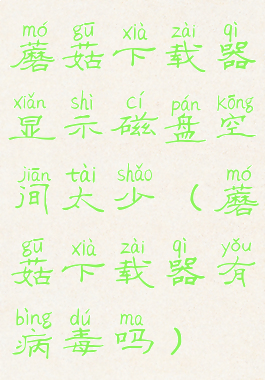 mó gū xià zài qì
蘑菇下载器
xiǎn shì cí pán kōng
显示磁盘空
jiān tài shǎo mó
间太少（蘑
gū xià zài qì yǒu
菇下载器有
bìng dú ma
病毒吗）